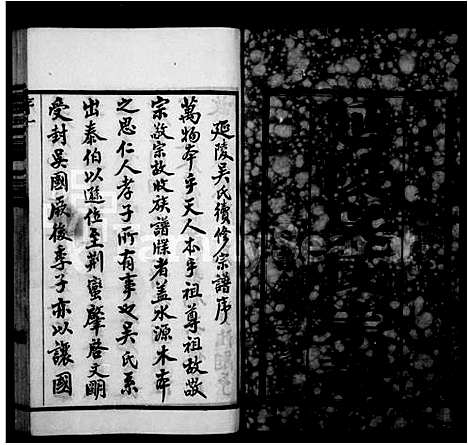 延陵吳氏續修宗譜序
萬物本乎天人本乎祖尊祖故敬
宗敬宗故收族譜牒者蓋水源木本
之思仁人孝子所有事也吳氏系
出泰伯以遜位至荆蠻肇啓文明
受封吳國厥後季子亦以讓國
序一